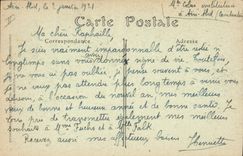 Aïn-Mlil, le 2 janvier 1921
Carte Postale
Correspondance
Adresse
Ma chère Raphaëlle,
Je suis vraiment impardonnable d'être restée si
longtemps sans vous donner signe de vie. Toutefois,
je ne vous ai pas oubliée, je pense souvent à vous, et
ne veux pas attendre plus longtemps à venir vous
à l'occasion du nouvel an mes meilleurs vœux
de bonne et heureuse année et de bonne santé. Je
vous prie de transmettre également mes meilleurs
souhaits à Mme Fuchs et à Mme Falk
Recevez aussi mes affectueux baisers
Henriette